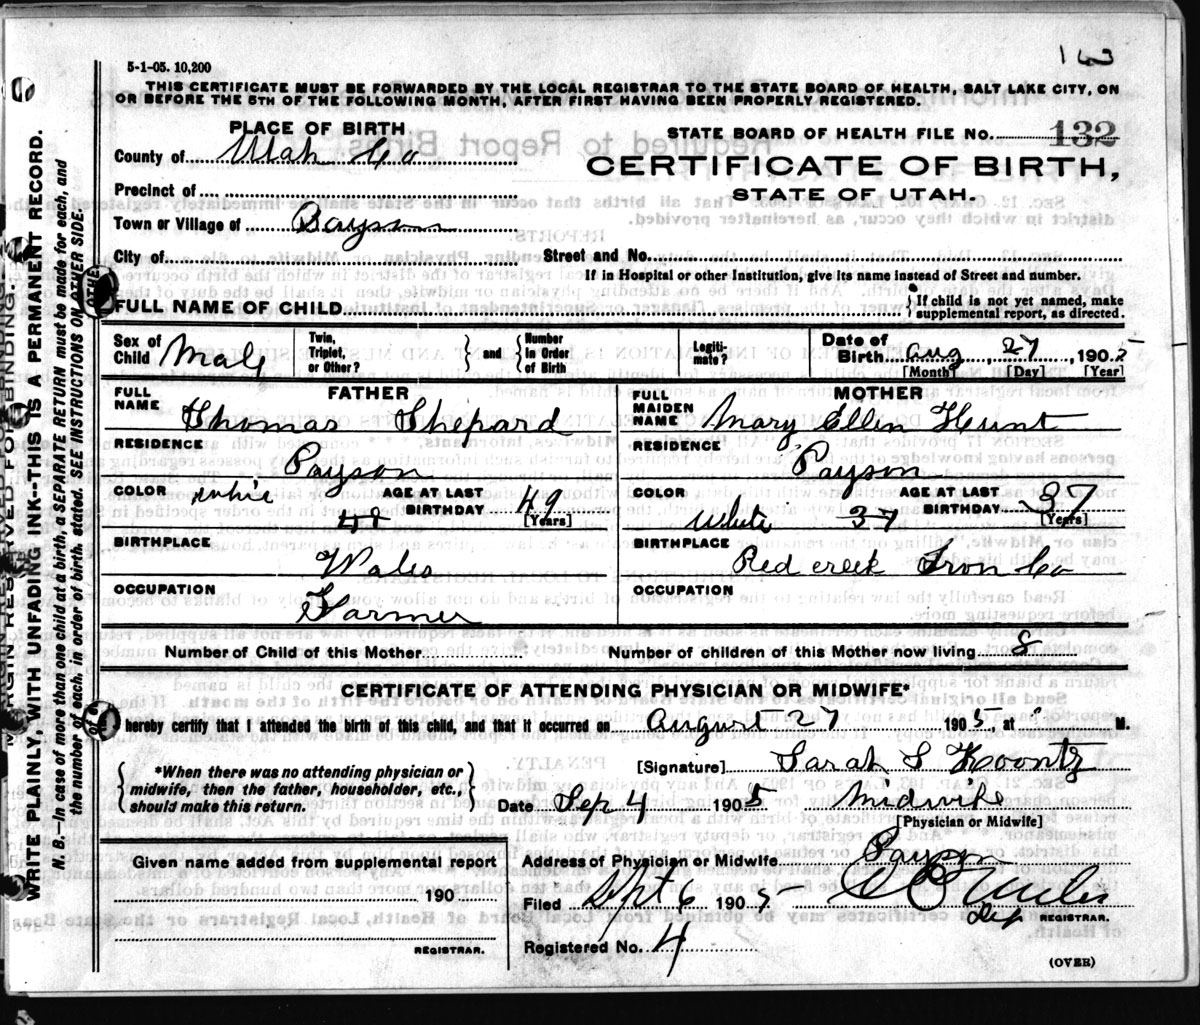 163
5-1-05. 10,200
THIS CERTIFICATE MUST BE FORWARDED BY THE LOCAL REGISTRAR TO THE STATE BOARD OF HEALTH, SALT LAKE CITY, ON
OR BEFORE THE 5TH OF THE FOLLOWING MONTH, AFTER FIRST HAVING BEEN PROPERLY REGISTERED.
PLACE OF BIRTH
County of Utah Co
Precinct of
Town or Village of Payson
City of
STATE BOARD OF HEALTH FILE No. 132
CERTIFICATE OF BIRTH,
STATE OF UTAH.
Street and No.
If in Hospital or other Institution, give its name instead of Street and number.
FULL NAME OF CHILD
{ If child is not yet named, make
supplemental report, as directed.
Sex of Child Male
Twin, Triplet, or Other? } and { Number in Order of Birth
Legitimate?
Date of Birth Aug 27, 1905
[Month] [Day] [Year]
FATHER
FULL NAME Thomas Shepard
RESIDENCE Payson
COLOR white
AGE AT LAST BIRTHDAY 49
[Years]
BIRTHPLACE Wales
OCCUPATION Farmer
MOTHER
FULL MAIDEN NAME Mary Ellen Hunt
RESIDENCE Payson
COLOR White
37
AGE AT LAST BIRTHDAY 37
[Years]
BIRTHPLACE Red creek Iron Co
OCCUPATION
Number of Child of this Mother
Number of children of this Mother now living 8
CERTIFICATE OF ATTENDING PHYSICIAN OR MIDWIFE*
I hereby certify that I attended the birth of this child, and that it occurred August 27 1905 at M.
{ *When there was no attending physician or
midwife, then the father, householder, etc.,
should make this return. }
[Signature] Sarah S Koontz
Date Sep 4 1905 Midwife
[Physician or Midwife]
Given name added from supplemental report
190
REGISTRAR.
Address of Physician or Midwife Payson
Filed Sept 6 1905
Dep REGISTRAR.
Registered No. 4
(OVER)
MARGIN RESERVED FOR BINDING.
WRITE PLAINLY, WITH UNFADING INK--THIS IS A PERMANENT RECORD.
N. B.—In case of more than one child at a birth, a SEPARATE RETURN must be made for each, and
the number of each, in order of birth, stated. SEE INSTRUCTIONS ON OTHER SIDE.